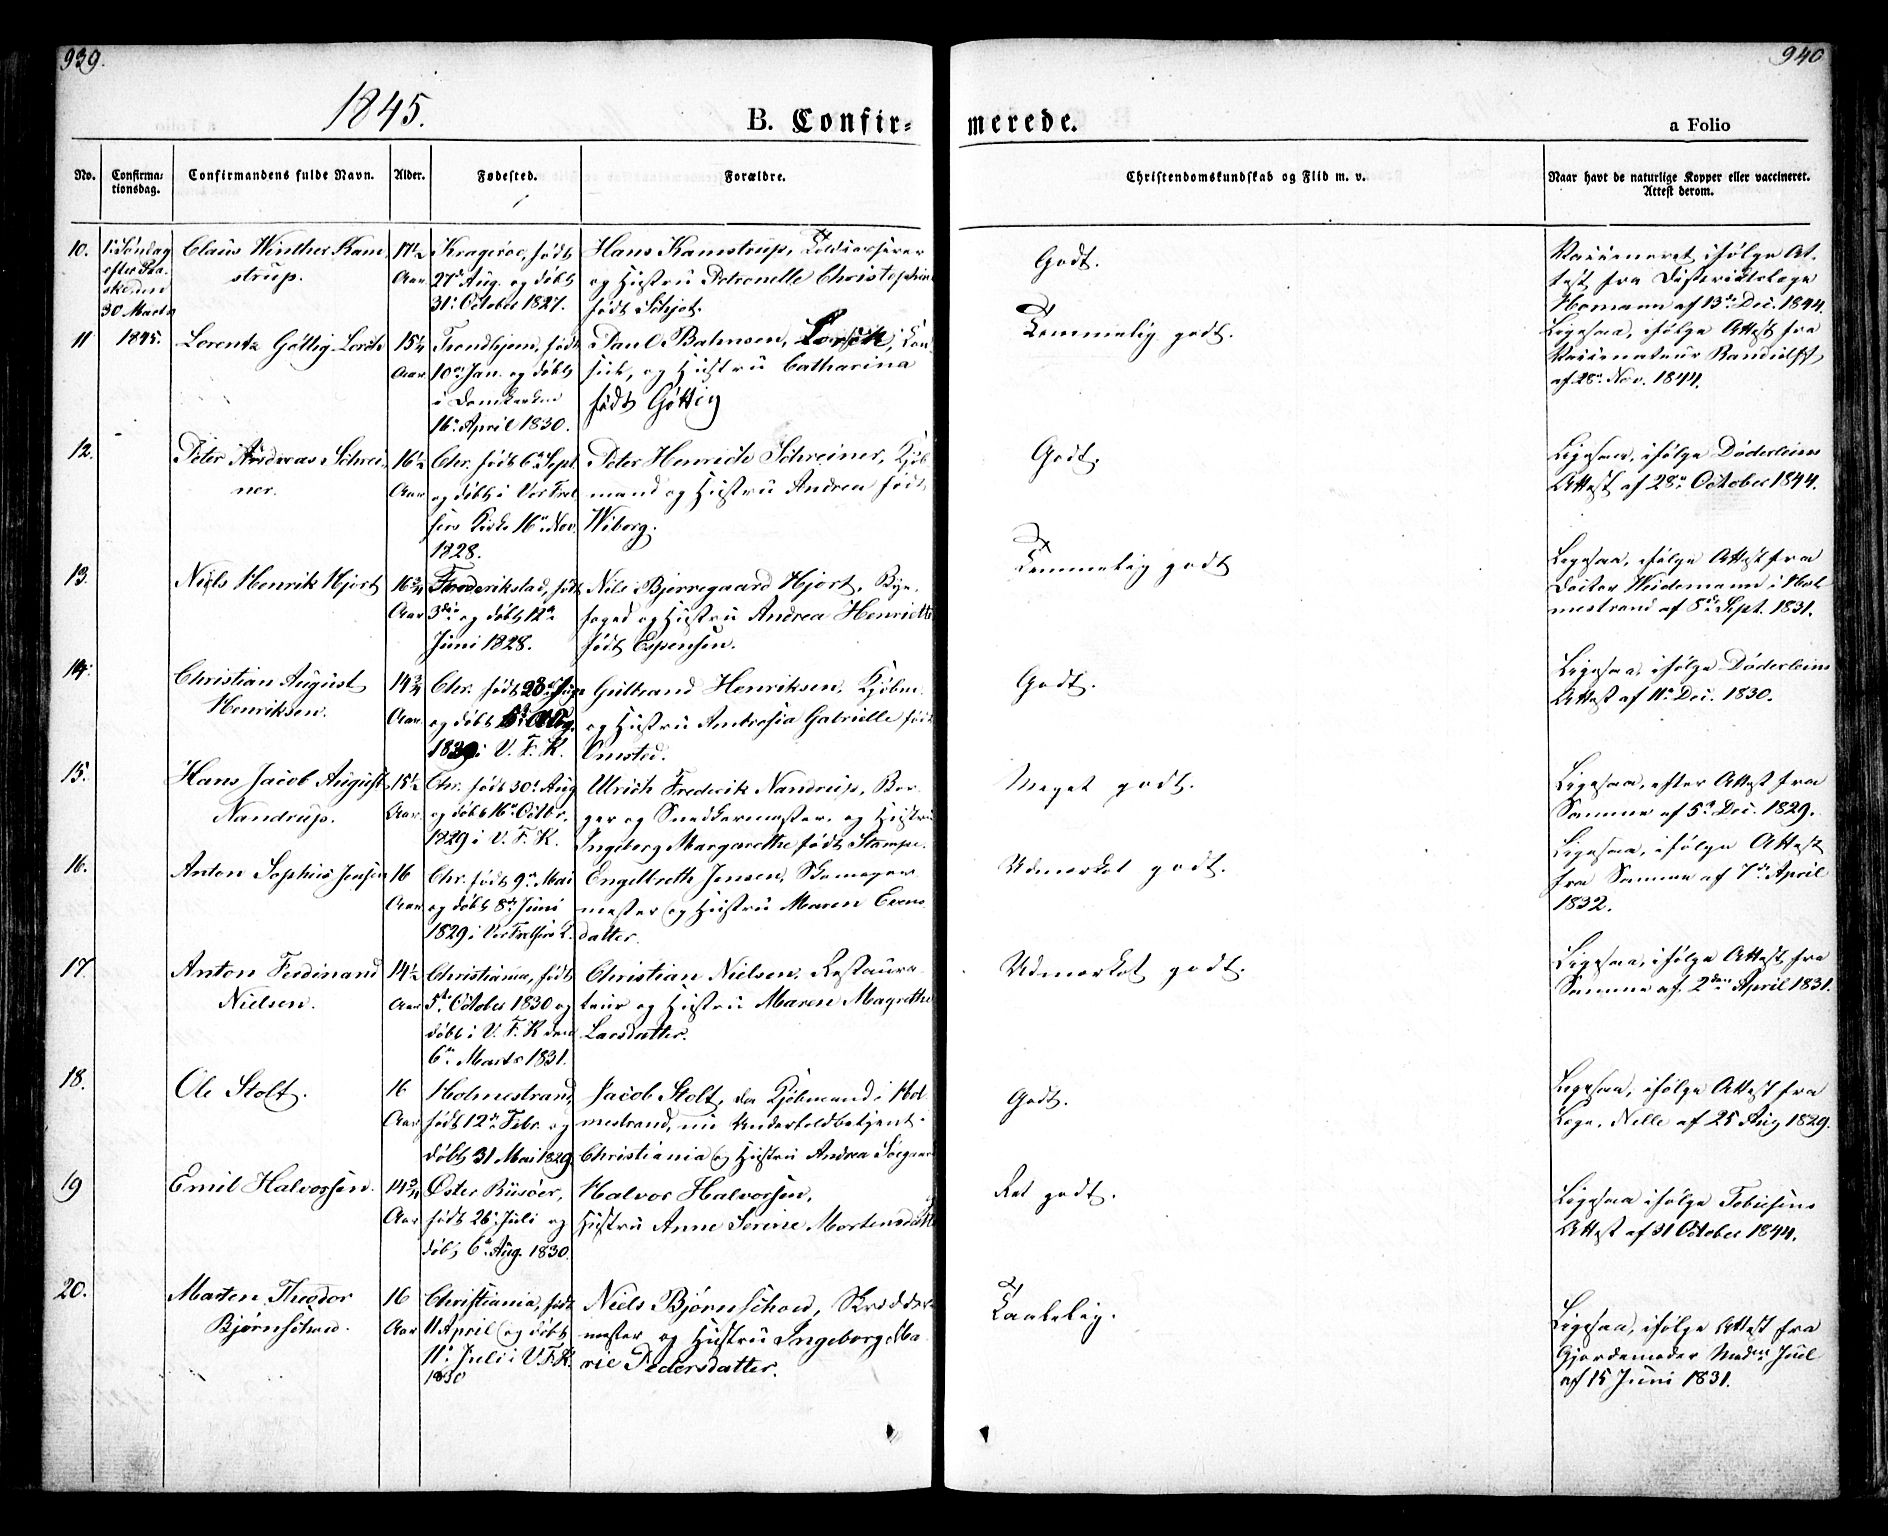 939.
940
1845.
B. Confir-
merede.
a Folio
No.
Confirma-
tionsdag.
Confirmandens fulde Navn.
Alder.
Fødested.
Forældre.
Christendomskundskab og Flid m. v.
Naar havt de naturlige Kopper eller vaccineret.
Attest derom.
10.
1ste Søndag
efter Paa-
skeden
30 Marts
1845.
Claus Winther Kam-
strup.
17½
Aar
Kragerøe, født
27de Aug. og døbt
31te October 1827.
Hans Kamstrup, Toldcasserer
og Hustru Petronelle Christophine
født Schjøt.
Godt.
Vaccineret ifølge At-
test fra Districtslæge
Homann af 13de Dec. 1844.
11
Lorentz Gøttig Lorck
15¼
Aar
Trondhjem, født
10de Jan. og døbt
i Domkirken
16de April 1830.
Paul Lorck, Con-
sul, og Hustru Catharina
født Gøttig
Temmelig godt.
Ligesaa, ifølge Attest fra
Vaccinateur Randulff
af 28de Nov. 1844.
12.
Peter Andreas Schrei-
ner.
16½
Aar
Chr. født 6te Sept.
og døbt i Vor Frel-
sers Kirke 16de Nov.
1828.
Peter Henrich Schreiner, Kjøb-
mand og Hustru Andrea født
Wiborg.
Godt.
Ligesaa, ifølge Døderleins
Attest af 28de October 1844.
13.
Niels Henrik Hjort
16¾
Aar
Frederikstad, født
3die og døbt 12te
Juni 1828.
Nils Bjerregaard Hjort, Bye-
foged og Hustru Andrea Henriette
født Espensen.
Temmelig godt
Ligesaa, ifølge Attest fra
Doctor Weidemann i Hol-
mestrand af 8de Sept. 1831.
14.
Christian August
Henriksen.
14¾
Aar.
Chr. født 28de
og døbt
1830 i V. F. K.
Gulbrand Henriksen, Kjøbm.
og Hustru Androsia Gabrielle født
Omsted.
Godt.
Ligesaa, ifølge Døderleins
Attest af 11te Dec. 1830.
15.
Hans Jacob August
Nandrup.
15½
Aar.
Chr. født 30te Aug
og døbt 16de Octbr.
1829 i V. F. K.
Ulrich Frederik Nandrup, Bor-
ger og Snedkermester, og Hustru
Ingeborg Margarethe født Stampe.
Meget godt.
Ligesaa, efter Attest fra
Samme af 5te Dec. 1829.
16.
Anton Sophus Jensen
16
Aar
Chr. født 9de Mai
og døbt 8de Juni
1829 i Vor Frelsers K.
Engelbreth Jensen, Skomager-
mester og Hustru Maren Evens-
datter.
Udmærket godt.
Ligesaa, ifølge Attest
fra Samme af 7de April
1832.
17.
Anton Ferdinand
Nielsen.
14½
Aar
Christiania, født
5te October 1830 og
døbt i V. F. K den
6te Marts 1831.
Christian Nielsen, Restaura-
teur og Hustru Maren Magrethe
Larsdatter.
Udmærket godt.
Ligesaa, ifølge Attest fra
Samme af 2den April 1831.
18.
Ole Stolt.
16
Aar
Holmestrand,
født 12te Febr. og
døbt 31 Mai 1829
Jacob Stolt, da Kjøbmand i Hol-
mestrand, nu Undertoldbetjent i
Christiania og Hustru Andrea Søegaard
Godt.
Ligesaa, ifølge Attest fra
Læge Nelle af 25 Aug 1829.
19
Emil Halvorsen.
14¾
Aar
Øster Riisøer,
født 26de Juli og
døbt 6te Aug. 1830.
Halvor Halvorsen,
Hustru Anne Serine Mortensdatter
Ret godt.
Ligesaa ifølge Tobiesens
Attest af 31 October 1844.
20.
Morten Theodor
Bjørnschou.
16
Aar
Christiania, født
11 April og døbt
11te Juli i V F. K.
1830
Niels Bjørnschou, Skrædder-
mester og Hustru Ingeborg Ma-
rie Pedersdatter.
Taalelig.
Ligesaa, ifølge Attest fra
Gjordemoder Madme Juel
af 15 Juni 1831.